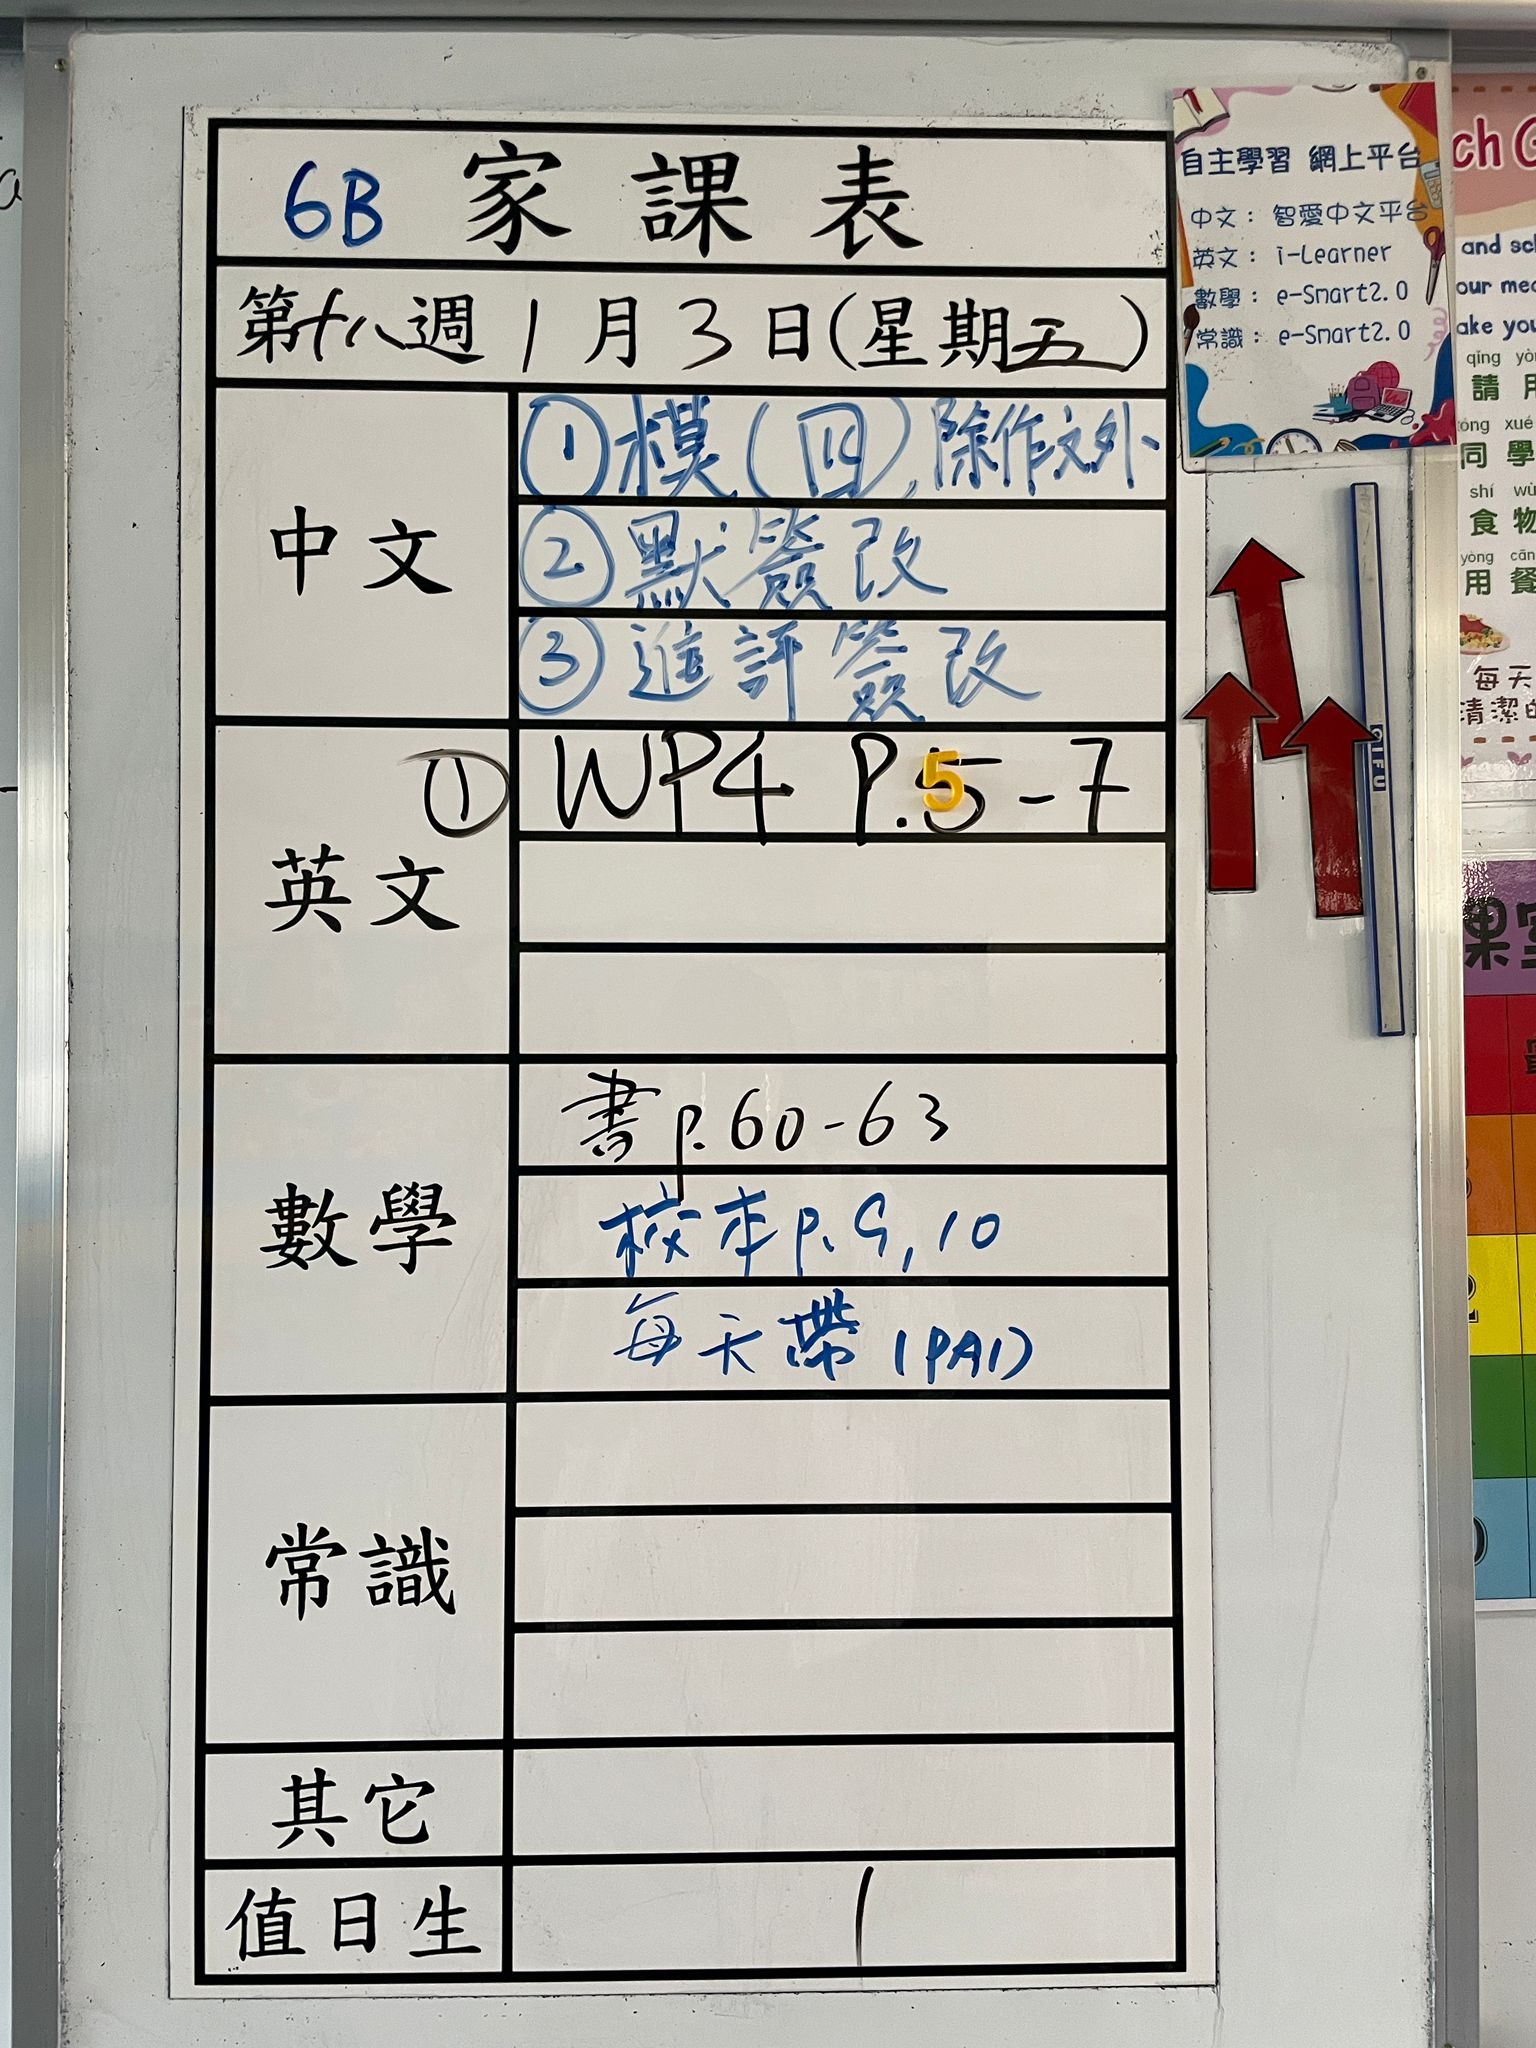 6B 家課表
第十八週 1月3日(星期五)
中文
①模(四),除作文外
②默簽改
③進評簽改
英文
① WP4 P.5-7
數學
書p.60-63
校本p.9,10
每天帶(PAI)
常識
其它
值日生
1
自主學習 網上平台
中文：智愛中文平台
英文：i-Learner
數學：e-Smart2.0
常識：e-Smart2.0
QIFU
ch G
and sc
our me
ake you
qǐng yò
請 用
tóng xué
同 學
shí wù
食 物
yòng cān
用 餐
每天
清潔的
課室
2
0